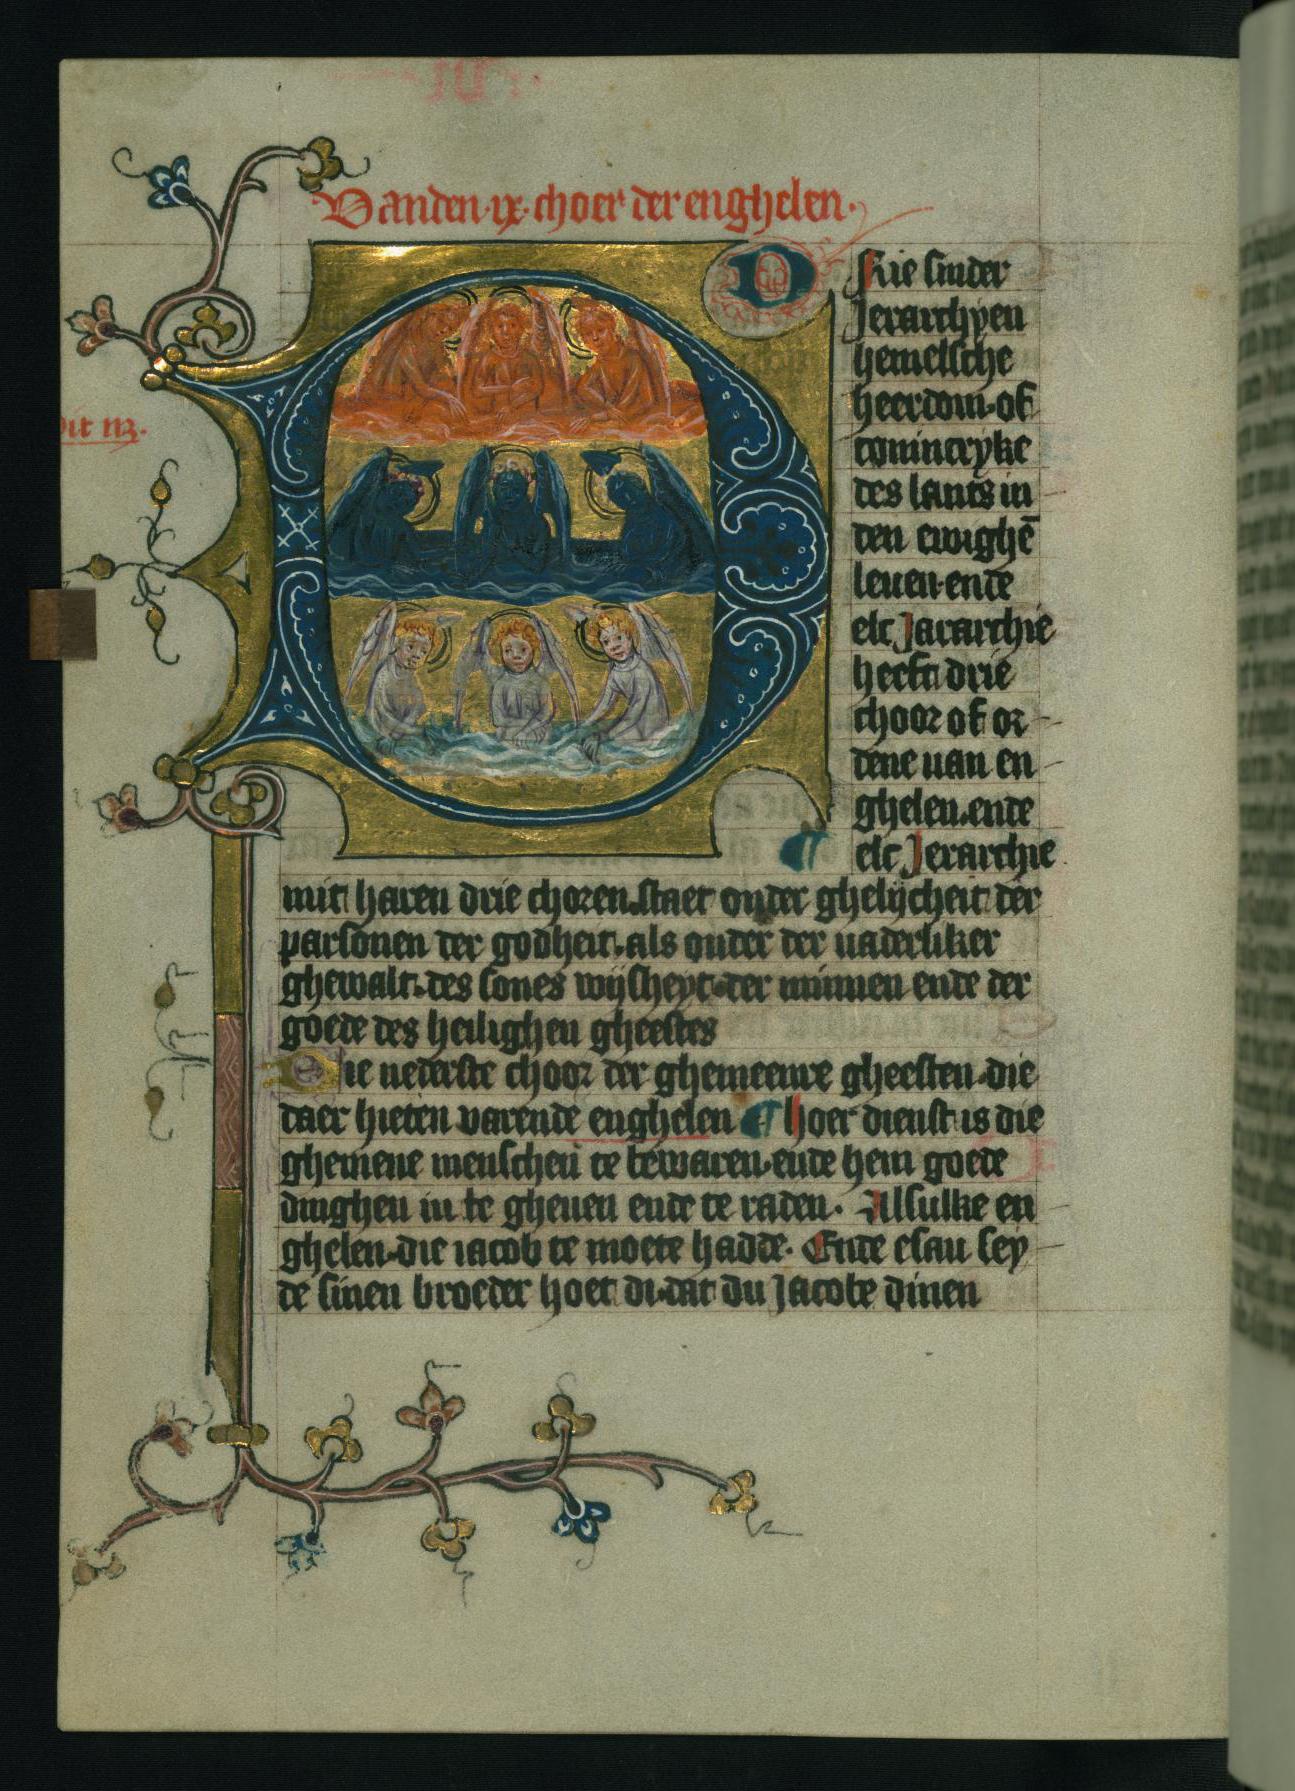 Van den ·ix· choer der enghelen·
D Rie sinder
Jerarchyen
hemelsche
heerdom·of
conincryke
des lants in
den ewighē
leuen·ende
elc Jararchie
heeft drie
choor of or
dene uan en
ghelen·ende
¶ elc Jerarchie
mit haren drie choren·staet onder ghelijcheit der
parsonen der godheit·als onder der uaderliker
ghewalt·des sones wijsheyt·der minnen ende der
goede des heilighen gheestes
Die nederste choor der ghemeenre gheesten·die
daer hieten varende enghelen ¶ hoer dienst is die
ghemene menschen te bewaren·ende hem goede
dinghen in te gheuen ende te raden· Alsulke en
ghelen·die iacob te moete hadde· Ende esau sey
de sinen broeder hoet di·dat du Jacobe dinen